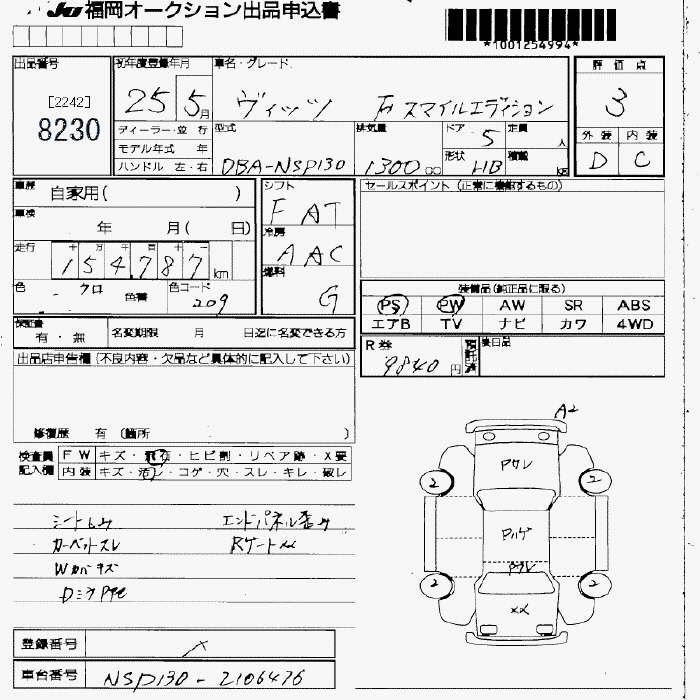 JU 福岡オークション出品申込書
*1001254994*
出品番号 初年度登録年月 車名・グレード 評価点
[2242] 25 5月 ヴィッツ スマイルエディション 3
8230
ディーラー・並行 型式 排気量 ドア 5 定員 人 外装 内装
モデル年式 年
ハンドル 左・右 DBA-NSP130 1300 cc 形状 HB 積載 kg D C
車歴 自家用( ) シフト FAT セールスポイント (正常に機能するもの)
車検 年 月( 日) 冷房 AAC
走行 十万千百十一
154,787 km 燃料 G
色 クロ 色番 色コード 209
装備品(純正品に限る)
PS PW AW SR ABS
エアB TV ナビ カワ 4WD
保証書 有・無 名変期限 月 日迄に名変できる方
R券 9840円 預託済 後日品
出品店申告欄 (不良内容・欠品など具体的に記入して下さい)
修復歴 有 (箇所 )
検査員記入欄 FW キズ・飛石・ヒビ割・リペア跡・X要
内装 キズ・汚れ・コゲ・穴・スレ・キレ・破レ
A2
シート
エンドパネル歪み
カーペットスレ
Wカバキズ
2 2
2 2
XX
登録番号
車台番号 NSP130-2106476